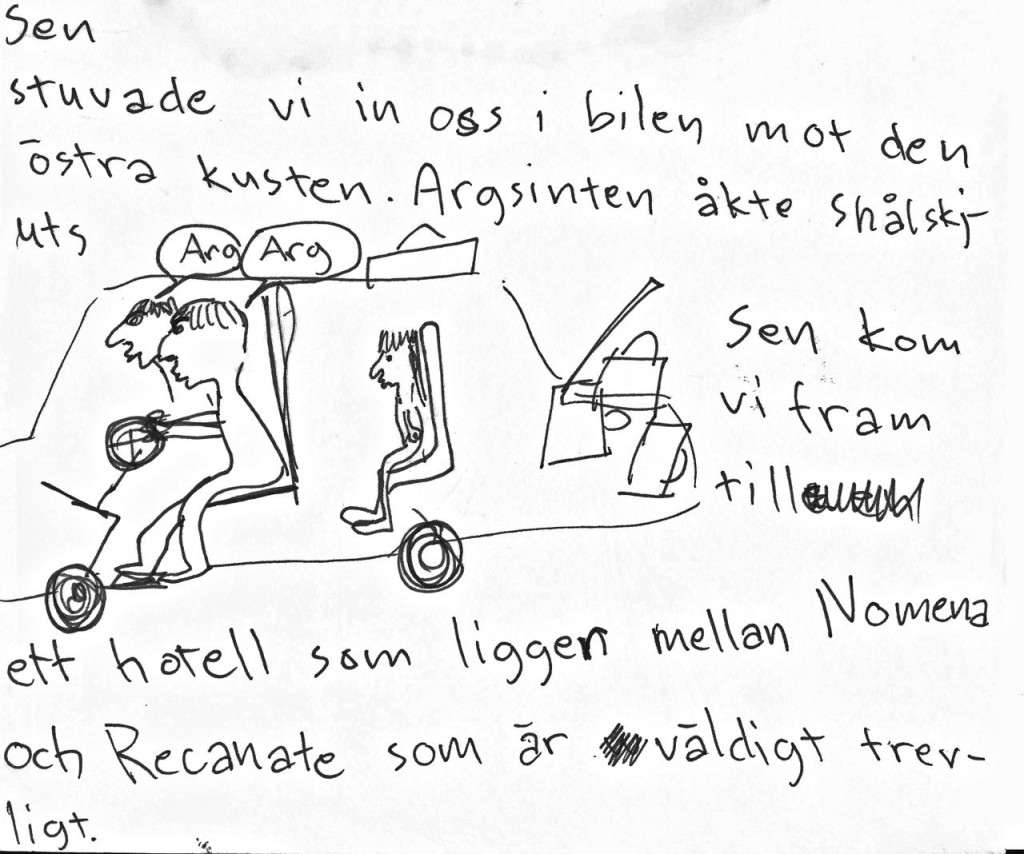 Sen
stuvade vi in oss i bilen mot den
östra kusten. Argsinten åkte shålskj-
uts
Arg Arg
Sen kom
vi fram
till
ett hotell som ligger mellan Nomena
och Recanate som är väldigt trev-
ligt.